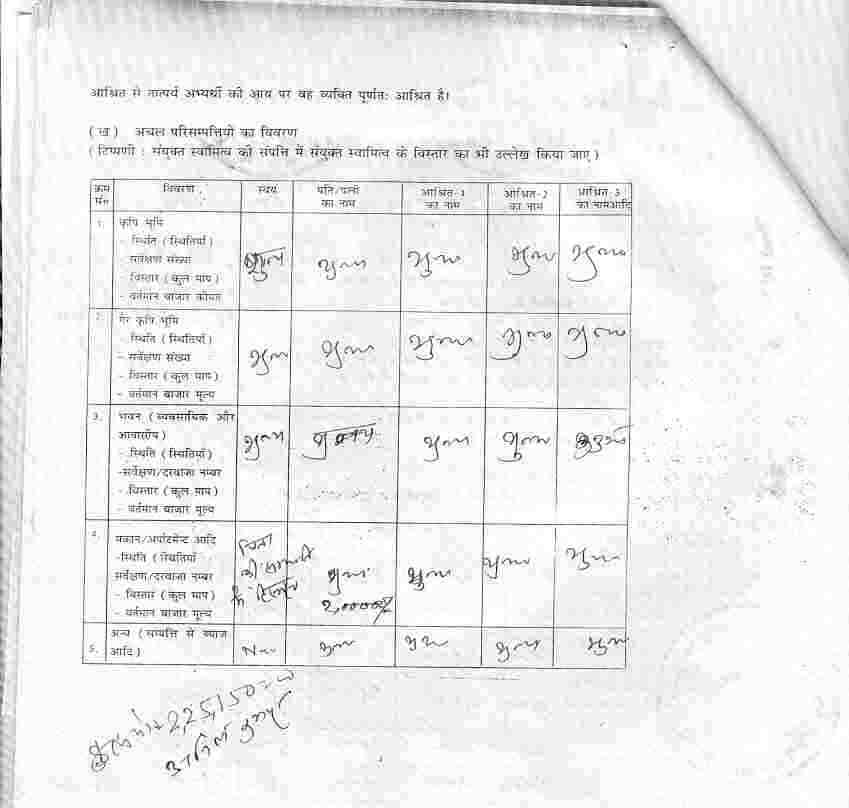 आश्रित से तात्पर्य अभ्यर्थी की आय पर वह व्यक्ति पूर्णत: आश्रित है।
(ख) अचल परिसम्पत्तियो का विवरण
(टिप्पणी : संयुक्त स्वामित्व की संपत्ति में संयुक्त स्वामित्व के विस्तार का भी उल्लेख किया जाए)
क्रम सं० विवरण स्वयं पति/पत्नी का नाम आश्रित-1 का नाम आश्रित-2 का नाम आश्रित-3 का नामआदि
1. कृषि भूमि
- स्थिति (स्थितियाँ)
सर्वेक्षण संख्या
- विस्तार (कुल माप)
- वर्तमान बाजार कीमत
शुन्य शुन्य शुन्य शुन्य शुन्य
2. गैर कृषि भूमि
- स्थिति (स्थितियाँ)
- सर्वेक्षण संख्या
- विस्तार (कुल माप)
- वर्तमान बाजार मूल्य
शुन्य शुन्य शुन्य शुन्य शुन्य
3. भवन (व्यवसायिक और
आवासीय)
- स्थिति (स्थितियाँ)
-सर्वेक्षण/दरवाजा नम्बर
- विस्तार (कुल माप)
- वर्तमान बाजार मूल्य
शुन्य शुन्य शुन्य शुन्य
4. मकान/अर्पाटमेन्ट आदि
-स्थिति (स्थितियाँ
सर्वेक्षण/दरवाजा नम्बर
- विस्तार (कुल माप)
- वर्तमान बाजार मूल्य
पिता की के शुन्य शुन्य शुन्य शुन्य
5. अन्य (सम्पत्ति से ब्याज
आदि)
शुन्य शुन्य शुन्य शुन्य
2,25,150=00